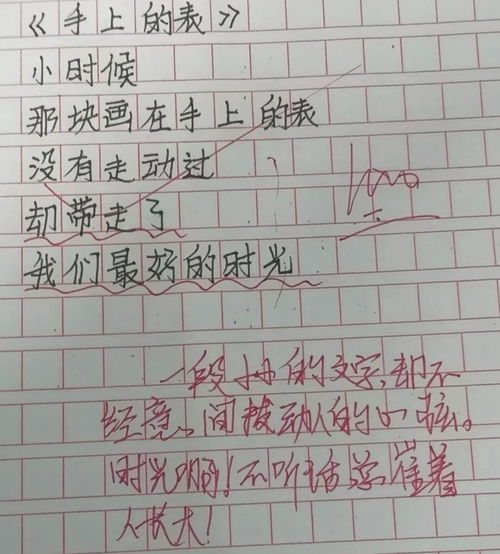 《手上的表》
小时候
那块画在手上的表
没有走动过
却带走了
我们最好的时光
100
一段小小的文字,却不
经意间拨动人的心弦。
时光啊!不听话总催着
人长大!